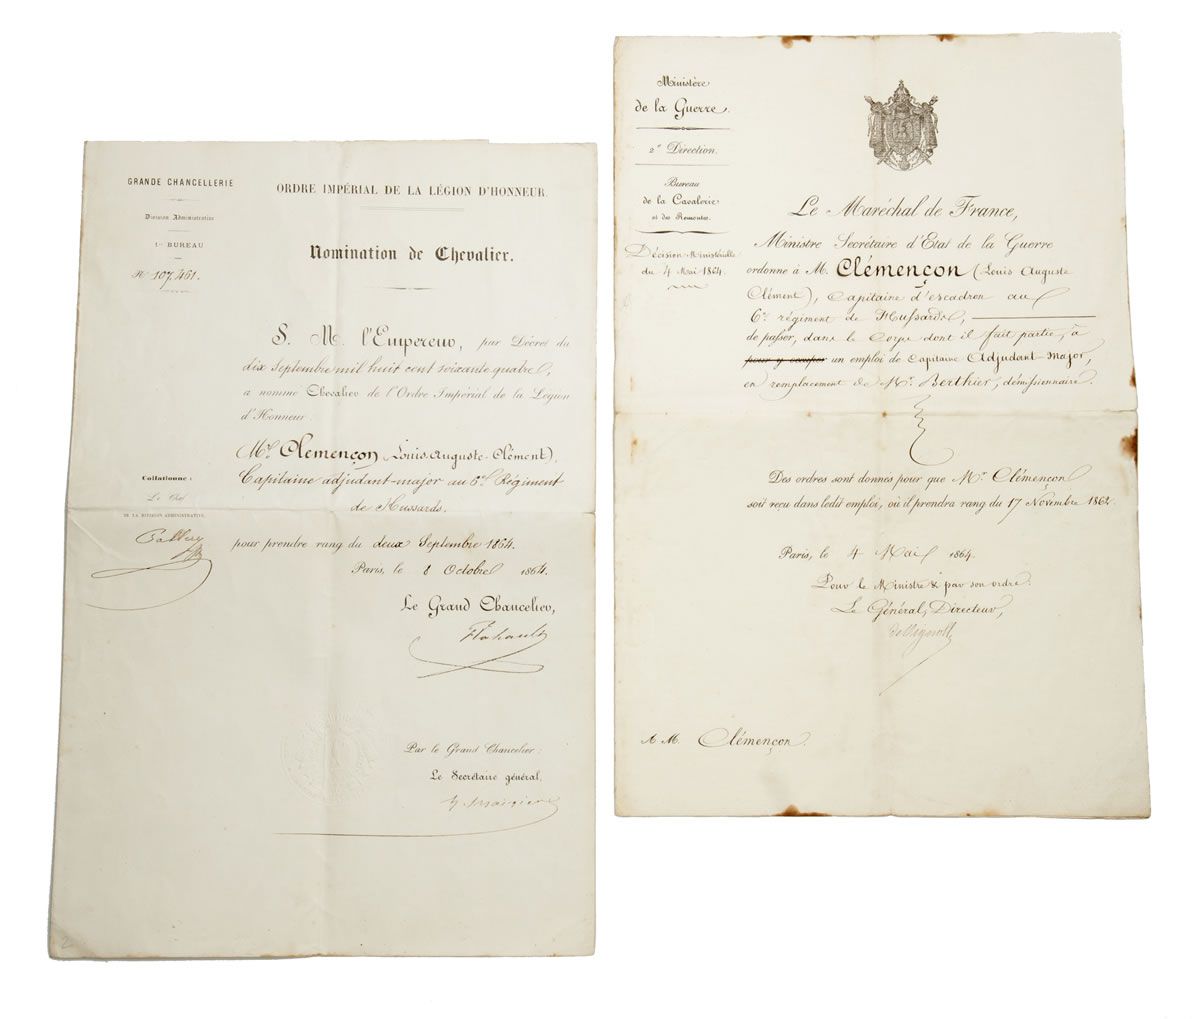 GRANDE CHANCELLERIE
Division Administrative
1er BUREAU
No 107,461.
ORDRE IMPÉRIAL DE LA LÉGION D'HONNEUR.
Nomination de Chevalier.
S. M. l'Empereur, par Décret du
dix Septembre mil huit cent soixante quatre,
a nommé Chevalier de l'Ordre Impérial de la Légion
d'Honneur
Mr. Clemençon (Louis-Auguste-Clément),
Capitaine adjudant-major au 6e. Régiment
de Hussards.
pour prendre rang du deux Septembre 1864.
Paris, le 8 Octobre 1864.
Collationné :
Le Chef
DE LA DIVISION ADMINISTRATIVE,
Le Grand Chancelier,
Flahault
Par le Grand Chancelier :
Le Secrétaire général,
2
Ministère
de la Guerre.
2e Direction.
Bureau
de la Cavalerie
et des Remontes.
Décision Ministérielle
du 4 Mai 1864.
Le Maréchal de France,
Ministre Secrétaire d'Etat de la Guerre
ordonne à M. Clémençon (Louis Auguste
Clément), Capitaine d'escadron au
6e. régiment de Hussards,
de passer, dans le Corps dont il fait partie, à
pour y occuper un emploi de Capitaine Adjudant-Major,
en remplacement de Mr. Berthier, démissionnaire.
Des ordres sont donnés pour que Mr. Clémençon
soit reçu dans ledit emploi, où il prendra rang du 17 Novembre 1862.
Paris, le 4 Mai 1864.
Pour le Ministre & par son ordre:
Le Général, Directeur,
A M. Clémençon.